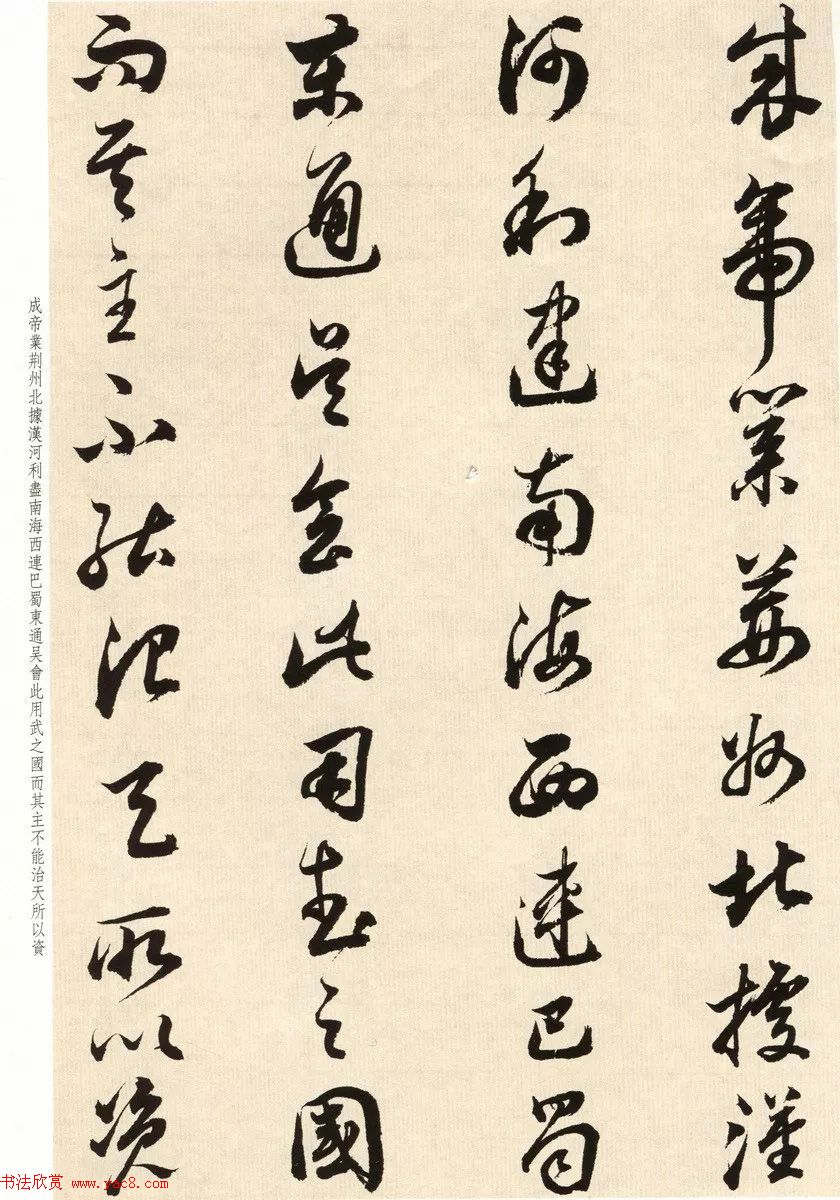 成帝業荆州北據漢
河利盡南海西連巴蜀
東通吴會此用武之國
而其主不能治天所以資
成帝業荆州北據漢河利盡南海西連巴蜀東通吴會此用武之國而其主不能治天所以資
书法欣赏 www.yac8.com